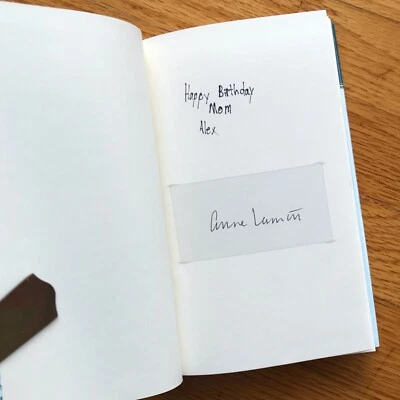 Happy Birthday
Mom
Alex
Anne Lamott